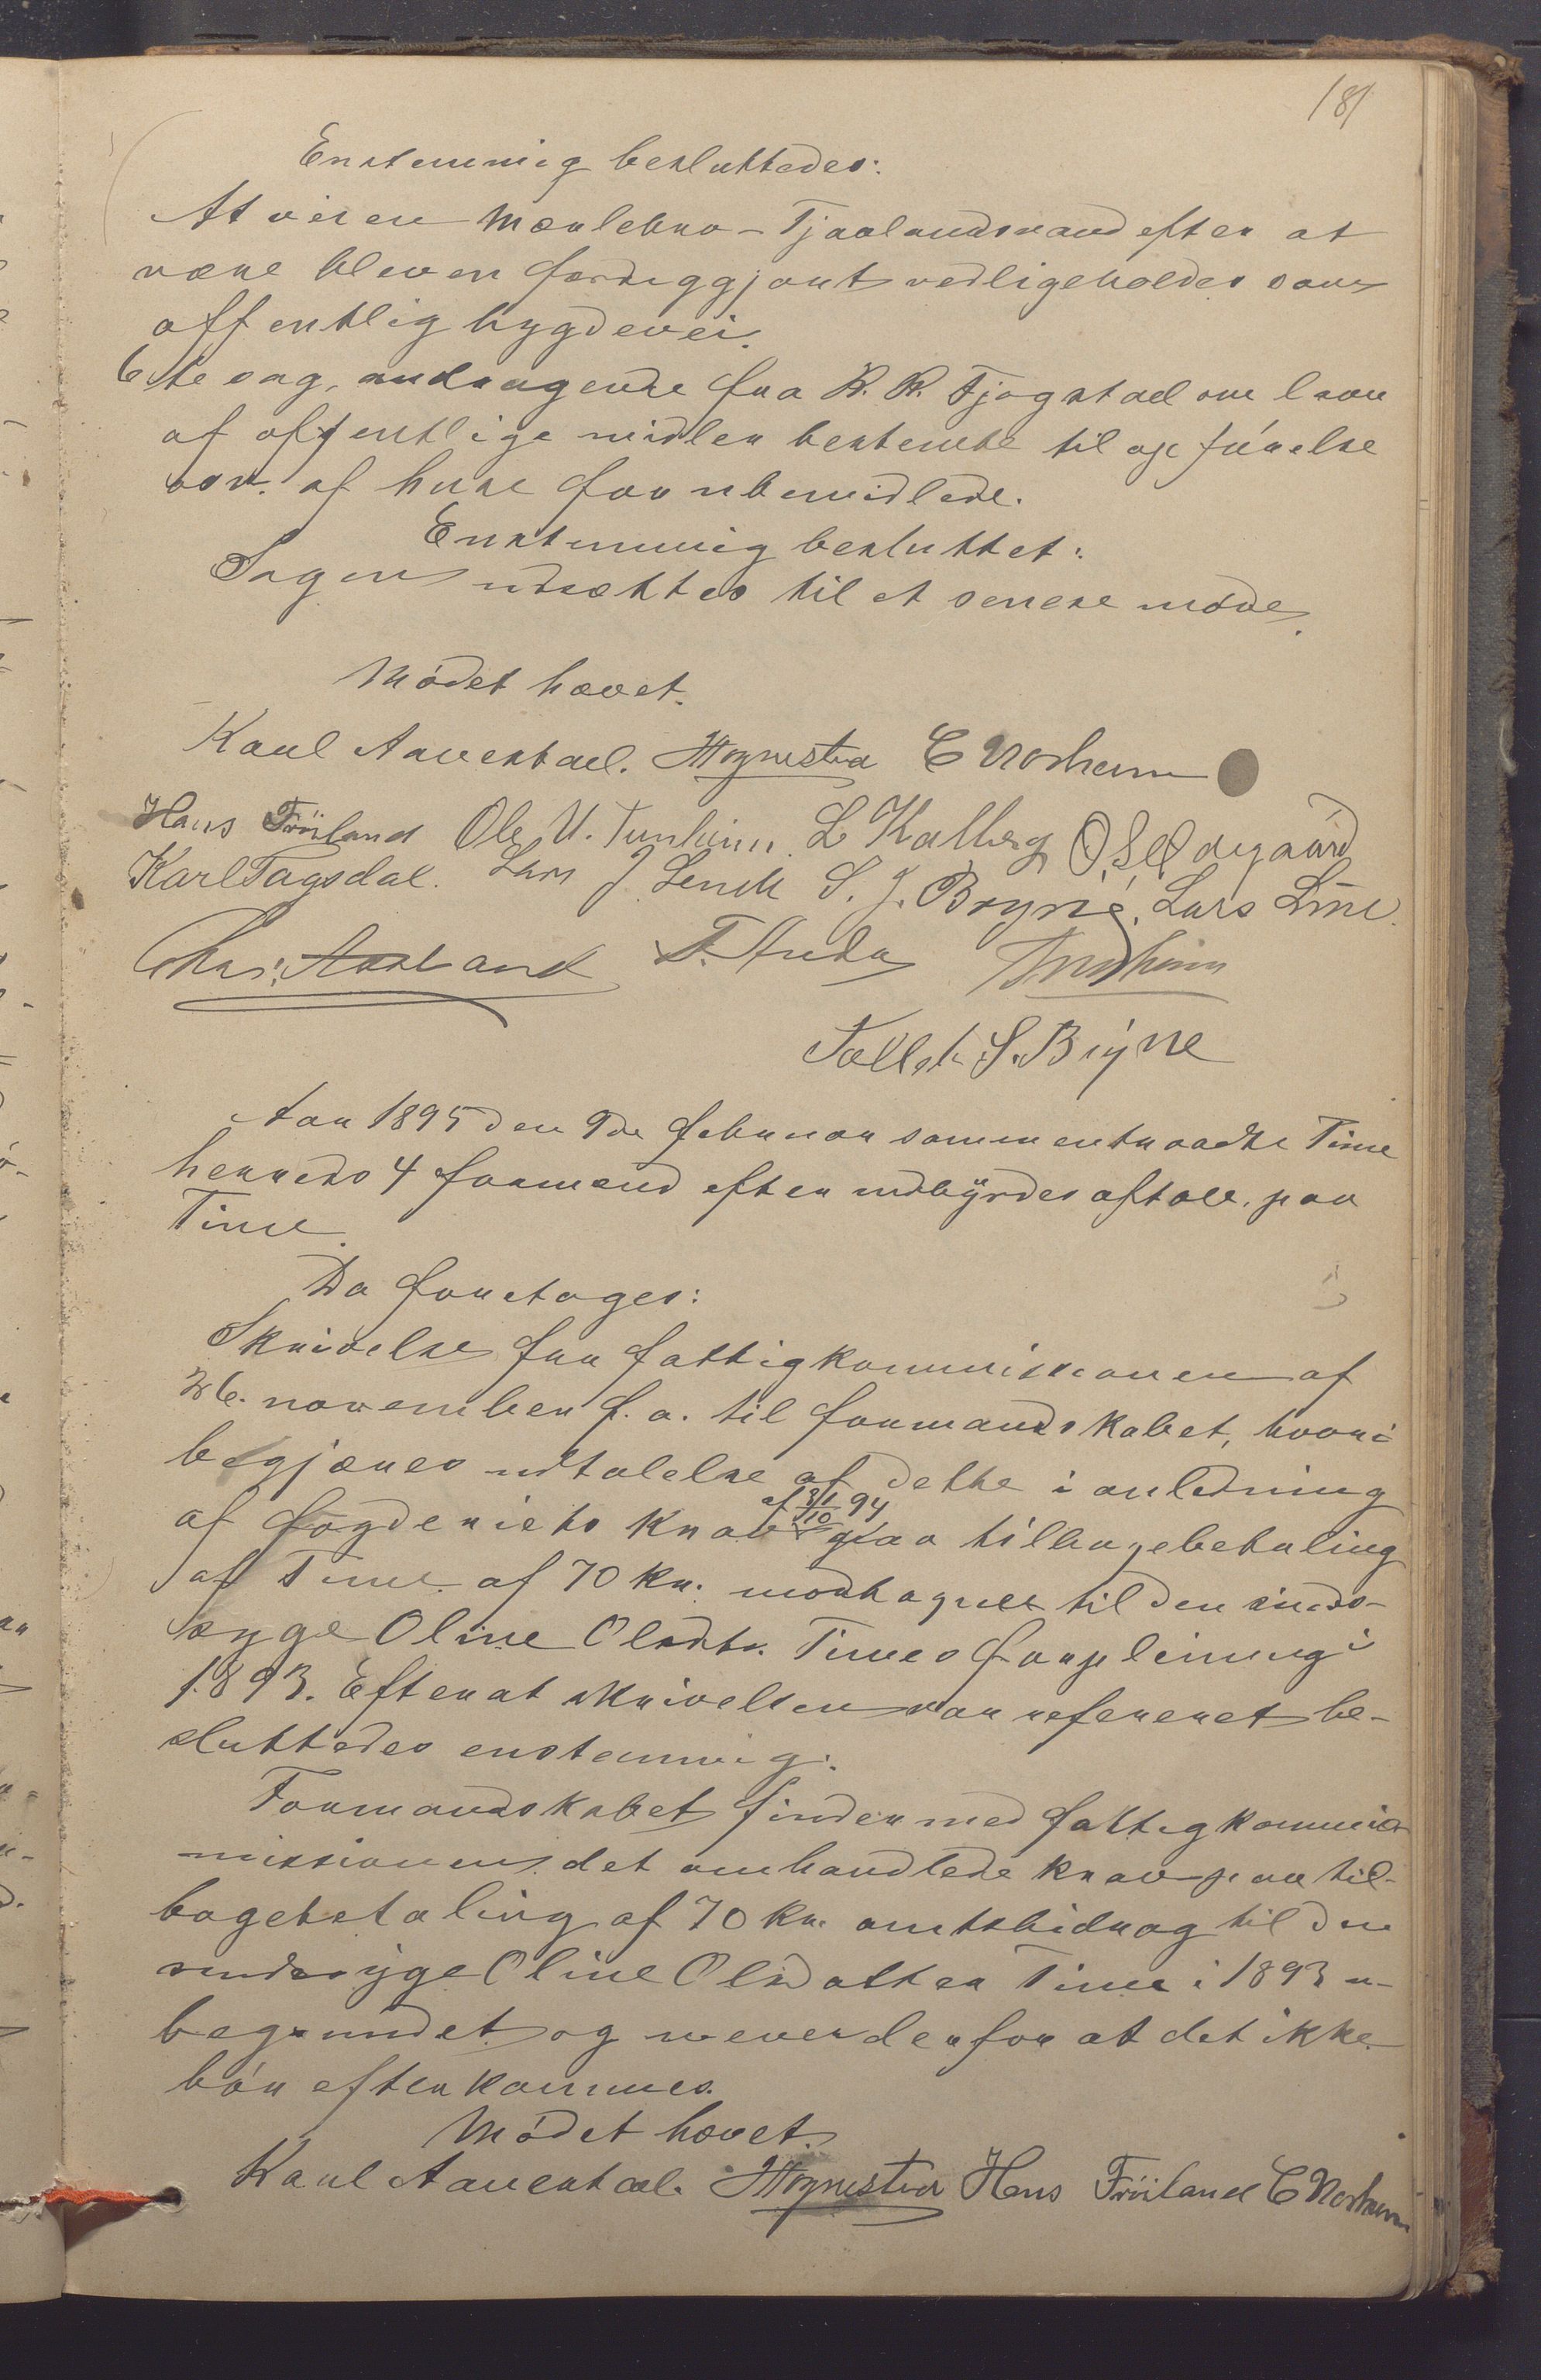 181
Enstemmig besluttedes:
At veien Mærlebro-Tjaalandsvand efter at
være bleven færdiggjort vedligeholdes som
offentlig bygdevei.
6te sag, andragende fra R. R. Fjogstad om laan
af offentlige midler bestemte til opførelse
osv. af huse for ubemidlede.
Enstemmig besluttet:
Sagen udsættes til et senere møde.
Mødet hævet.
Karl Aarestad. Hognestad C Norheim
Hans Fröiland Ole U. Tunheim. L Kalberg O. S. Ødegaard
Karl Tagsdal. Lars J. Lende S. J. Bryne, Lars Line.
Chr. Aarland T. Anda
Tollef S. Bryne
Aar 1895 den 9de februar sammentraadte Time
herreds 4 formænd efter indbyrdes aftale paa
Time.
Da foretoges:
Skrivelse fra fattigkommissionen af
26. november f. a. til formandskabet, hvori
begjæres udtalelse af dette i anledning
af fogderiets krav af 31/10 94 paa tilbagebetaling
af Time af 70 kr. modtagne til den sinds-
syge Oline Olsdtr. Times forpleining i
1893. Efterat skrivelsen var refereret be-
sluttedes enstemmig:
Formandskabet finder med fattigkommis-
missionen det omhandlede krav paa til-
bagebetaling af 70 kr. amtsbidrag til den
sindssyge Oline Olsdatter Time i 1893 u-
begrundet og mener derfor at det ikke
bør efterkommes.
Mødet hævet.
Karl Aarestad. Hognestad Hans Fröiland C Norheim